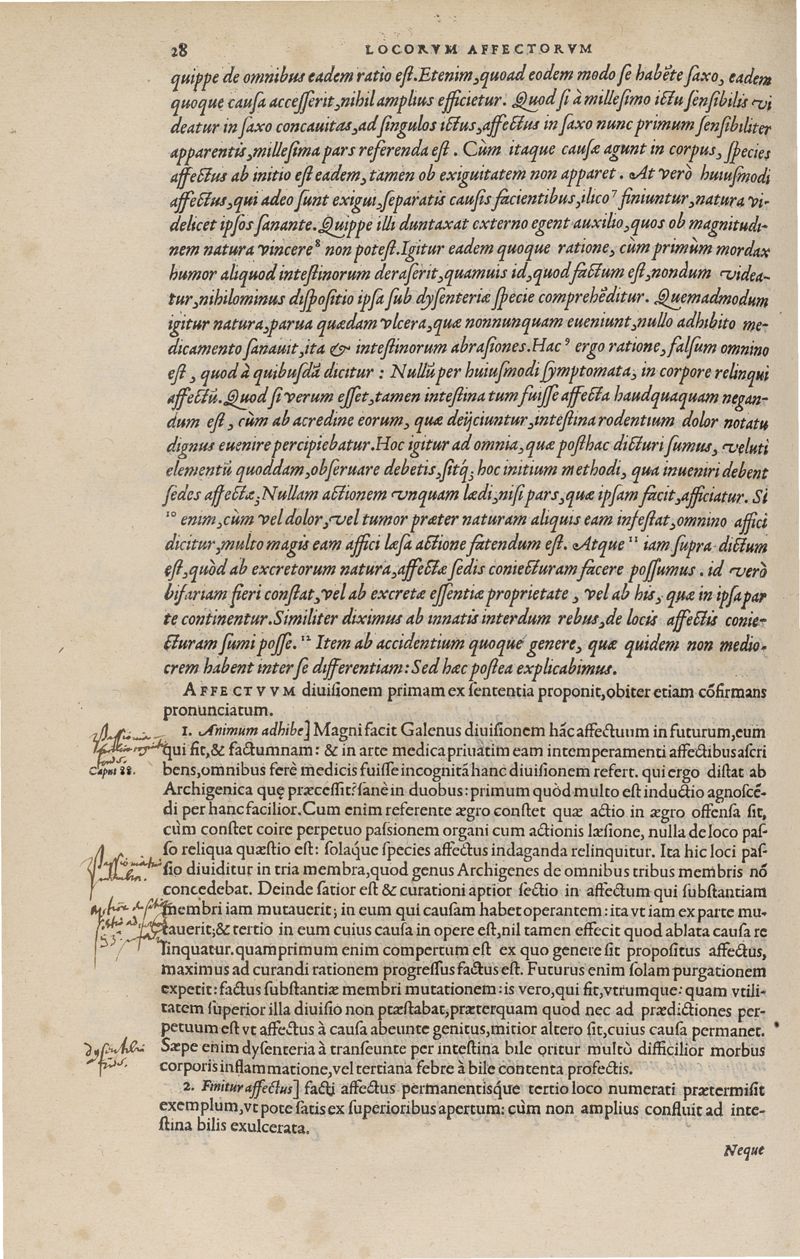 28 LOCORVM AFFECTORVM
quippe de omnibus eadem ratio eſt.Etenim,quoad eodem modo ſe habēte ſaxo, eadem
quoque cauſa acceſſerit,nihil amplius efficietur. Quod ſi à milleſimo ictu ſenſibilis vi
deatur in ſaxo concauitas,ad ſingulos ictus,affectus in ſaxo nunc primum ſenſibiliter
apparentis,milleſima pars referenda eſt . Cùm itaque cauſæ agunt in corpus, ſpecies
affectus ab initio eſt eadem, tamen ob exiguitatem non apparet . At verò huiuſmodi
affectus,qui adeo ſunt exigui,ſeparatis cauſis facientibus,ilico⁷ finiuntur,natura vi-
delicet ipſos ſanante.Quippe illi duntaxat externo egent auxilio,quos ob magnitudi-
nem natura vincere⁸ non poteſt.Igitur eadem quoque ratione, cùm primùm mordax
humor aliquod inteſtinorum deraſerit,quamuis id,quod factum eſt,nondum videa-
tur,nihilominus diſpoſitio ipſa ſub dyſenteriæ ſpecie comprehēditur. Quemadmodum
igitur natura,parua quædam vlcera,quæ nonnunquam eueniunt,nullo adhibito me-
dicamento ſanauit,ita & inteſtinorum abraſiones.Hac⁹ ergo ratione,falſum omnino
eſt , quod à quibuſdā dicitur : Nullū per huiuſmodi ſymptomata, in corpore relinqui
affectū.Quod ſi verum eſſet,tamen inteſtina tum fuiſſe affecta haudquaquam negan-
dum eſt , cùm ab acredine eorum, quæ deijciuntur,inteſtina rodentium dolor notatu
dignus euenire percipiebatur.Hoc igitur ad omnia,quæ poſthac dicturi ſumus, veluti
elementū quoddam,obſeruare debetis,ſitq; hoc initium methodi, qua inueniri debent
ſedes affectæ,Nullam actionem vnquam lædi,niſi pars,quæ ipſam facit,afficiatur. Si
¹⁰ enim,cùm vel dolor,vel tumor præter naturam aliquis eam infeſtat,omnino affici
dicitur,multo magis eam affici læſa actione fatendum eſt. Atque ¹¹ iam ſupra dictum
eſt,quòd ab excretorum natura,affectæ ſedis coniecturam facere poſſumus . id verò
bifariam fieri conſtat,vel ab excretæ eſſentiæ proprietate , vel ab his, quæ in ipſa par
te continentur.Similiter diximus ab innatis interdum rebus,de locis affectis conie-
cturam ſumi poſſe. ¹² Item ab accidentium quoque genere, quæ quidem non medio-
crem habent inter ſe differentiam: Sed hæc poſtea explicabimus.
AFFECTVVM diuiſionem primam ex ſententia proponit,obiter etiam cōfirmans
pronunciatum.
1. Animum adhibe] Magni facit Galenus diuiſionem hāc affectuum in futurum,eum
qui fit,& factumnam: & in arte medica priuatim eam intemperamenti affectibus aſcri
Caput 28.
bens,omnibus ferè medicis fuiſſe incognitā hanc diuiſionem refert. qui ergo diſtat ab
Archigenica quę præceſſit? ſanè in duobus: primum quòd multo eſt inductio agnoſcē-
di per hanc facilior.Cum enim referente ægro conſtet quæ actio in ægro offenſa ſit,
cùm conſtet coire perpetuo paſsionem organi cum actionis læſione, nulla de loco paſ-
ſo reliqua quæſtio eſt: ſoláque ſpecies affectus indaganda relinquitur. Ita hic loci paſ-
ſio diuiditur in tria membra,quod genus Archigenes de omnibus tribus membris nō
concedebat. Deinde ſatior eſt & curationi aptior ſectio in affectum qui ſubſtantiam
membri iam mutauerit; in eum qui cauſam habet operantem: ita vt iam ex parte mu-
tauerit;& tertio in eum cuius cauſa in opere eſt,nil tamen effecit quod ablata cauſa re
linquatur.quamprimum enim compertum eſt ex quo genere ſit propoſitus affectus,
maximus ad curandi rationem progreſſus factus eſt. Futurus enim ſolam purgationem
expetit: factus ſubſtantiæ membri mutationem: is vero,qui fit,vtrumque: quam vtili-
tatem ſuperior illa diuiſio non ptæſtabat,præterquam quod nec ad prædictiones per-
petuum eſt vt affectus à cauſa abeunte genitus,mitior altero ſit,cuius cauſa permanet.
Sæpe enim dyſenteria à tranſeunte per inteſtina bile oritur multò difficilior morbus
corporis inflammatione,vel tertiana febre à bile contenta profectis.
2. Finitur affectus] facti affectus permanentisq́ue tertio loco numerati prætermiſit
exemplum,vt pote ſatis ex ſuperioribus apertum: cùm non amplius confluit ad inte-
ſtina bilis exulcerata.
Neque